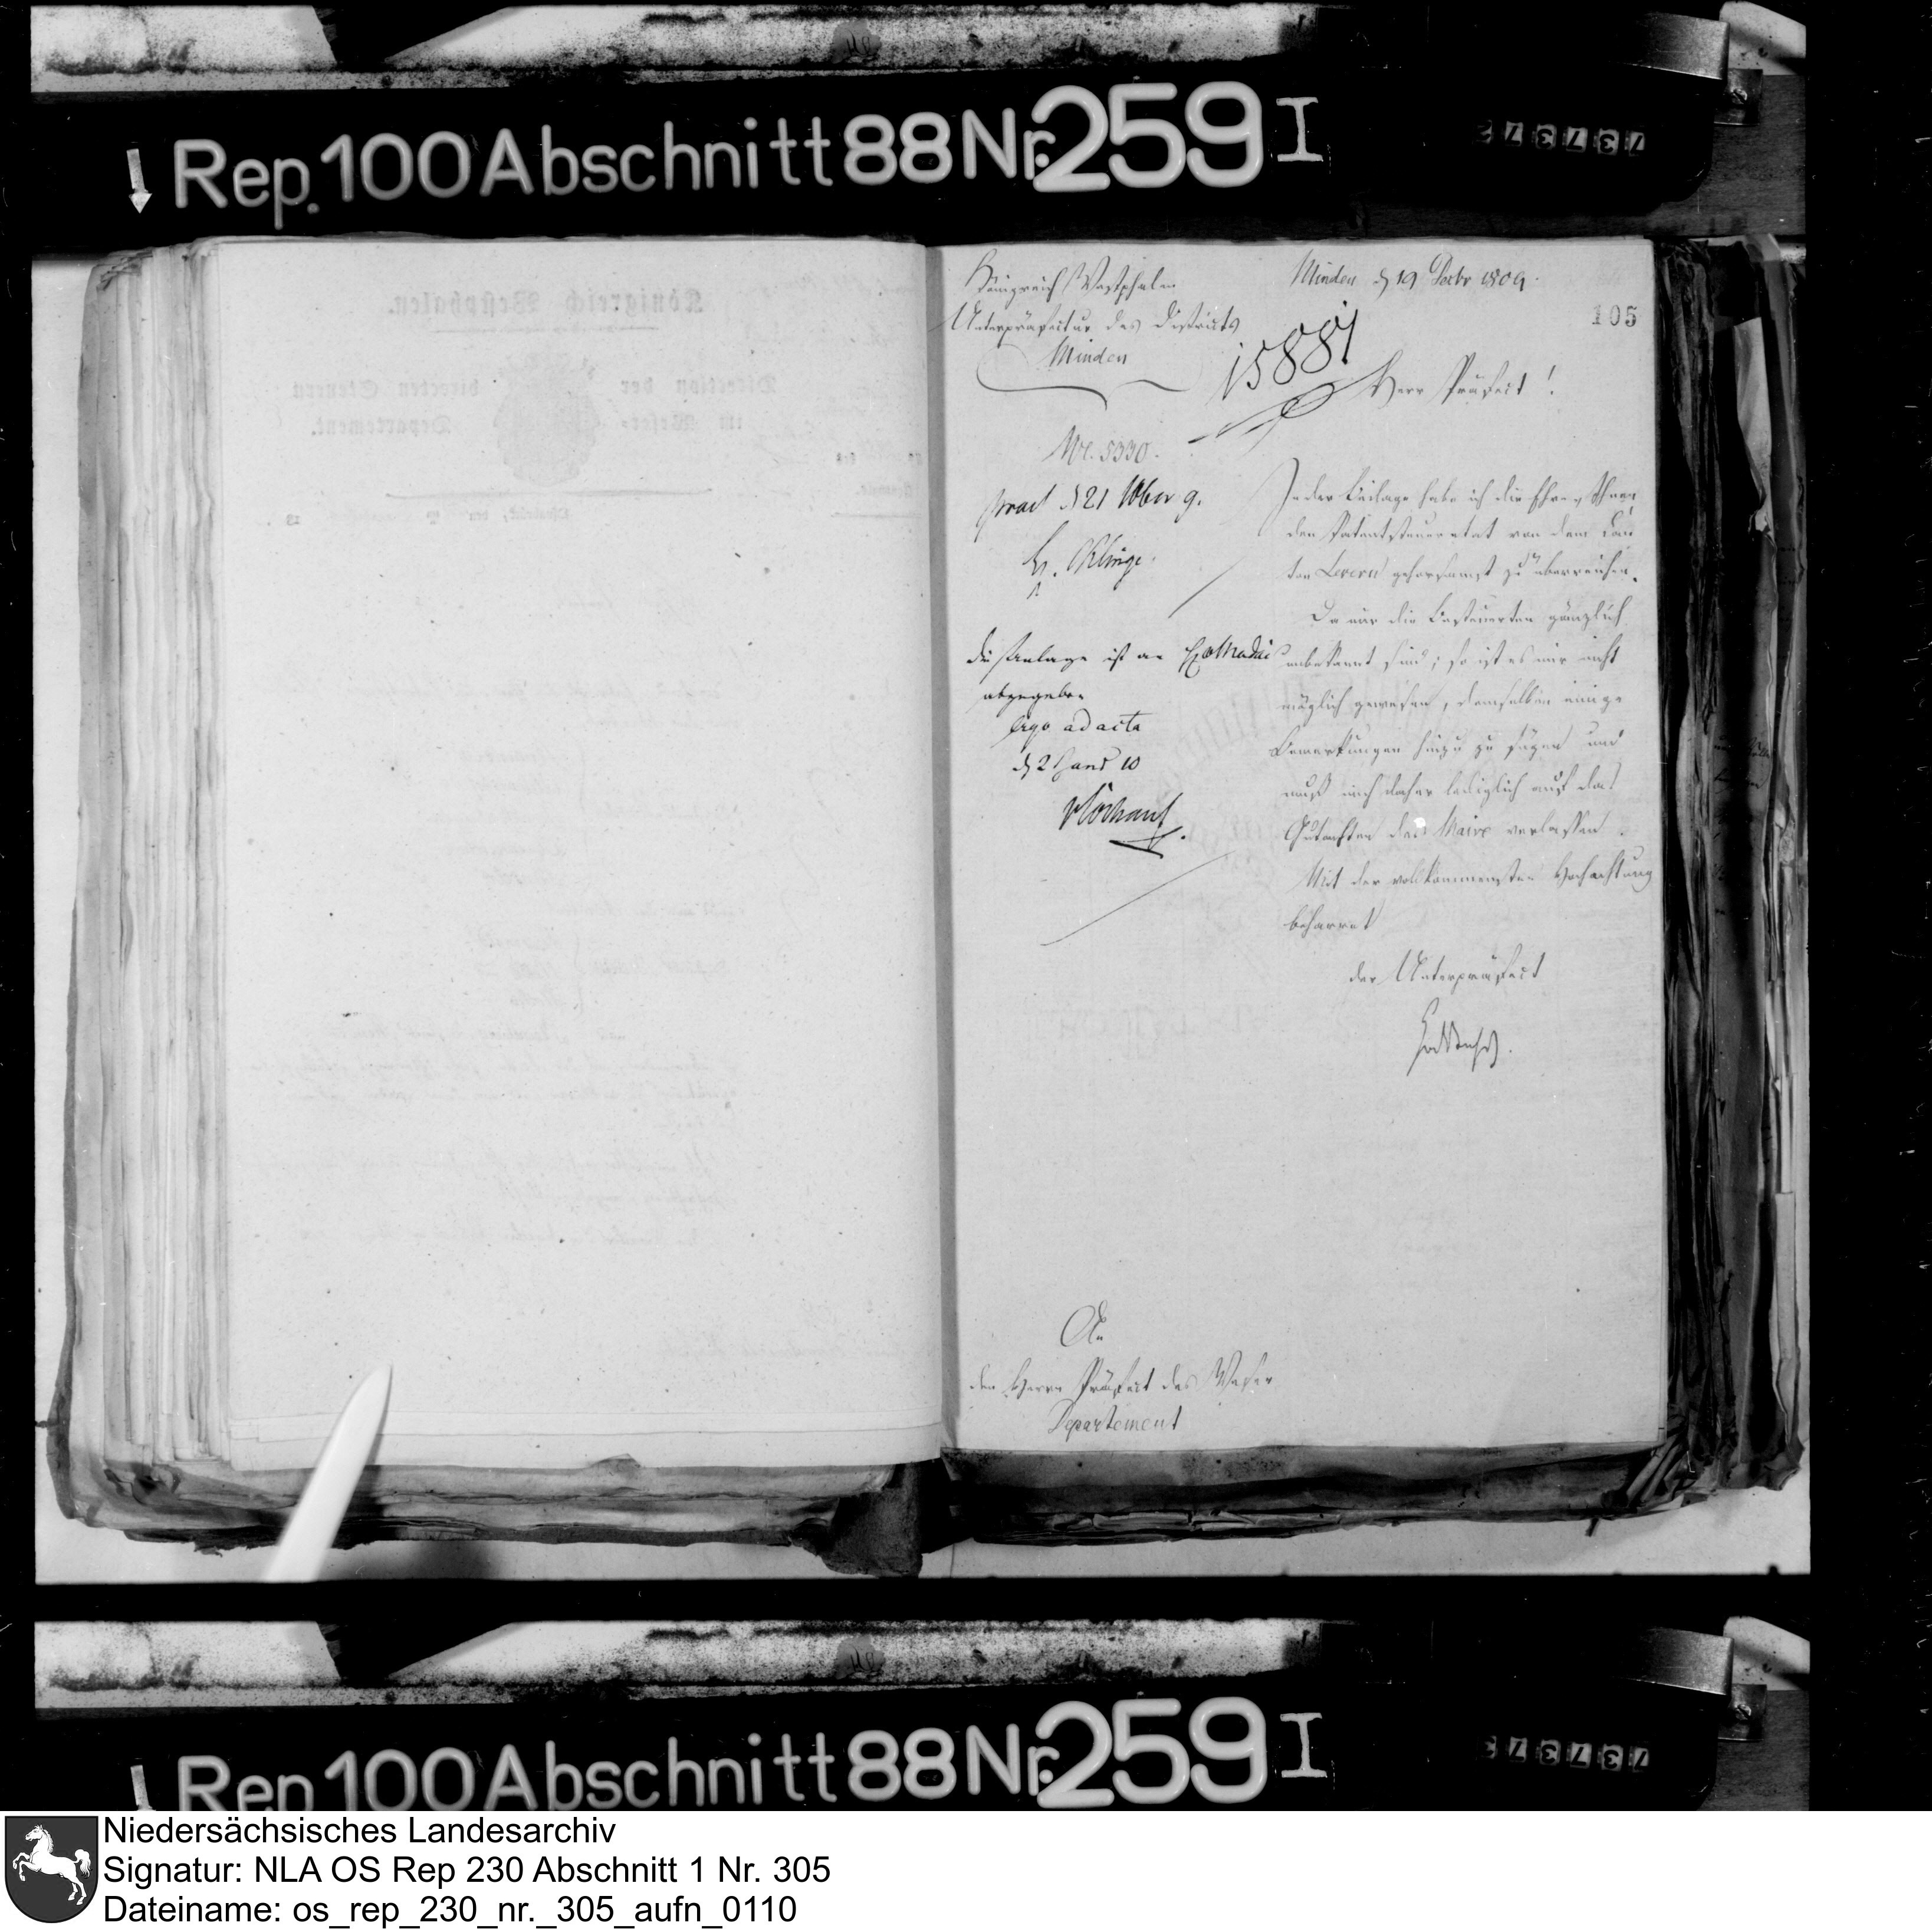 Rep. 100 Abschnitt 88 Nr. 259 I
737372
Königreich Westphalen
Unterpräfectur des Districts
Minden
Minden d 19 Decbr 1809.
105
15881
Herr Präfect!
Nr. 5330.
praes d 21 Xbr 9.
H. Klinge.
die Anlage ist an
abgegeben
ergo ad acta
d 2 Janr 10
In der Beilage habe ich die Ehre, Ihnen
den Patentsteueretat von dem Can
ton Levern gehorsamst zu überreichen.
Da mir die Besteuerten gänzlich
unbekannt sind; so ist es mir nicht
möglich gewesen, demselben einige
Bemerkungen hinzu zu fügen und
muß mich daher lediglich auf das
Gutachten des Maire verlassen.
Mit der vollkommensten Hochachtung
beharret
der Unterpräfect
An
den Herrn Präfect des Weser
Departement
Königreich Westphalen.
Direction der directen Steuern
im Weser- Departement.
Rep 100 Abschnitt 88 Nr. 259 I
Niedersächsisches Landesarchiv
Signatur: NLA OS Rep 230 Abschnitt 1 Nr. 305
Dateiname: os_rep_230_nr._305_aufn_0110